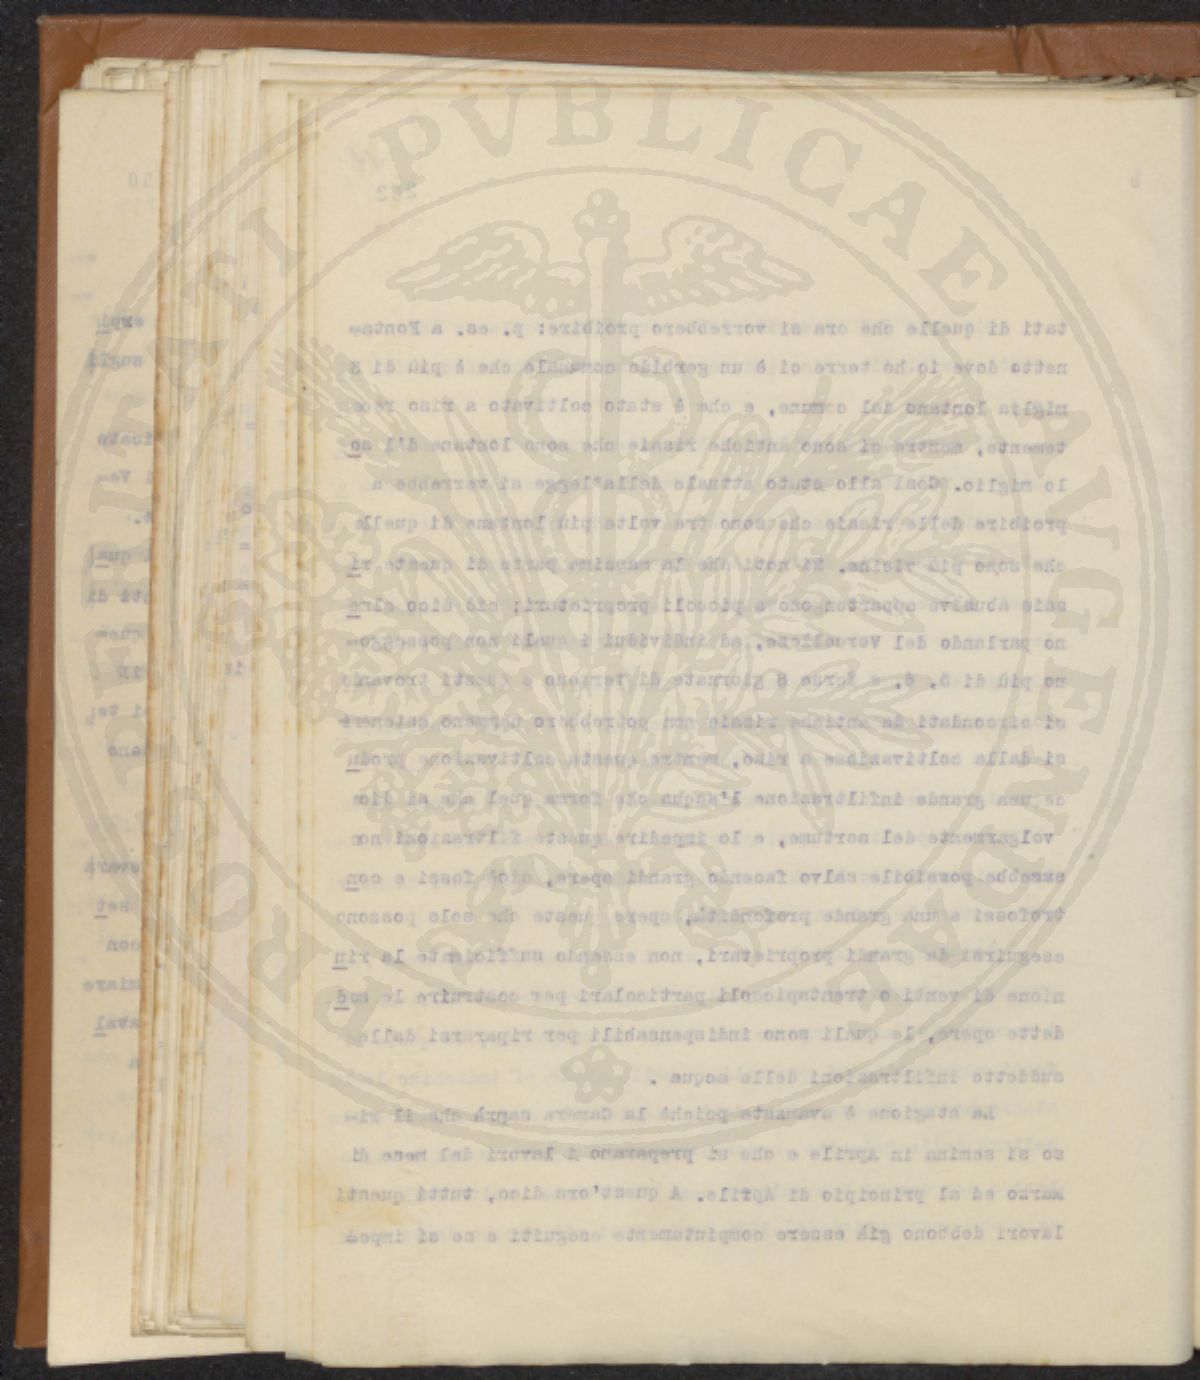 PROSPERITATI PVBLICAE AVGENDAE
282
tati di quelle che ora si vorrebbero proibire: p. es. a Fonta-
netto dove io ho terre ci è un gerbido comunale che è più di 3
miglia lontano dal comune, e che è stato coltivato a riso recen
temente, mentre ci sono antiche risaie che sono lontane d'l so
lo miglio. Così allo stato attuale della legge si verrebbe a
proibire delle risaie che sono tre volte più lontane di quelle
che sono più vicine. Si noti che la massima parte di queste ri
saie abusive apparten ono a piccoli proprietari; ciò dico alme
no parlando del Vercellese, ad individui i quali non posseggo-
no più di 5, 6, e forse 8 giornate di terreno e questi trovando
si circondati da antiche risaie non potrebbero nemmeno astener-
si dalla coltivazione a riso, mentre questa coltivazione produ
ce una grande infiltrazione l'acqua che forma quel che si dice
volgarmente del sortume, e lo impedire queste filtrazioni non
sarebbe possibile salvo facendo grandi opere, cioè fossi e con
trofossi a una grande profondità, opere queste che solo possono
eseguirsi da grandi proprietari, non essendo sufficiente la riu
nione di venti o trentapiccoli particolari per costruire le sud
dette opere, le quali sono indispensabili per ripararsi dalle
suddette infiltrazioni delle acque .
La stagione è avanzata poichè la Camera saprà che il ri-
so si semina in Aprile e che si preparano i lavori del mese di
marzo ed al principio di Aprile. A quest'ora dico, tutti questi
lavori debbono già essere compiutamente eseguiti e se si impe-